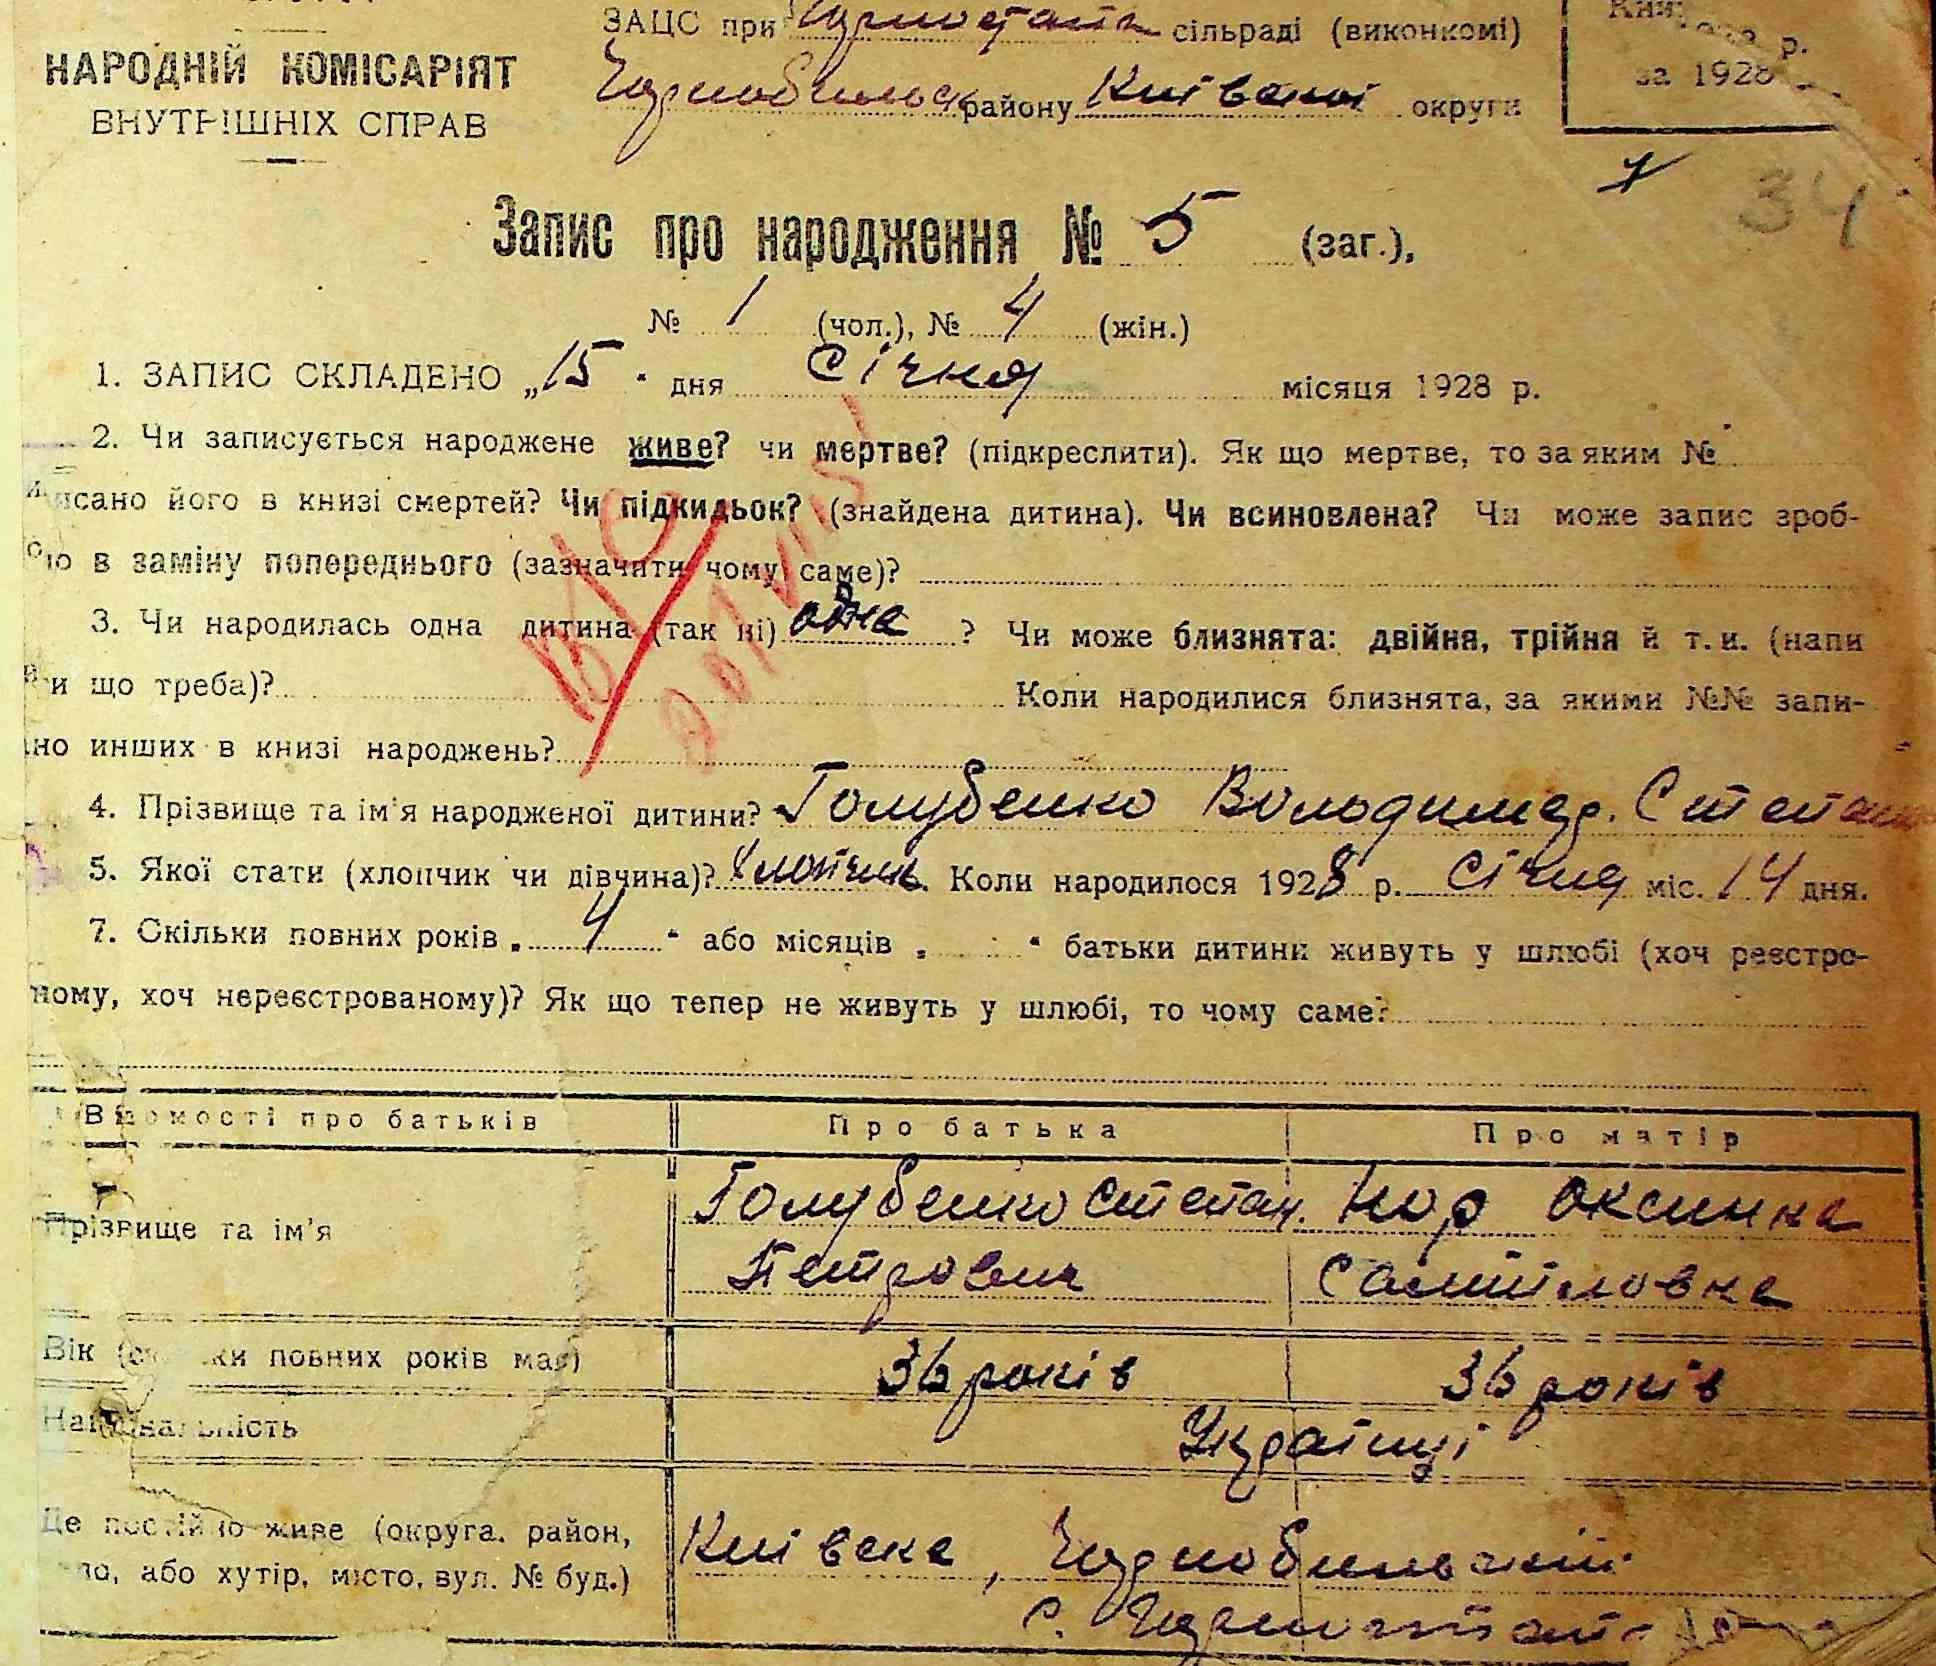 ЗАЦС при сільраді (виконкомі)
НАРОДНІЙ КОМІСАРІЯТ
ВНУТРІШНІХ СПРАВ
району Київської округи
за 1928 р.
34
Запис про народження № 5 (заг.),
№ 1 (чол.), № 4 (жін.)
1. ЗАПИС СКЛАДЕНО „15" дня Січня місяця 1928 р.
2. Чи записується народжене живе? чи мертве? (підкреслити). Як що мертве, то за яким №
исано його в книзі смертей? Чи підкидьок? (знайдена дитина). Чи всиновлена? Чи може запис зроб-
ю в заміну попереднього (зазначити чому саме)?
3. Чи народилась одна дитина (так ні) одна ? Чи може близнята: двійня, трійня й т. и. (напи
и що треба)? Коли народилися близнята, за якими №№ запи-
но инших в книзі народжень?
4. Прізвище та ім'я народженої дитини? Голубенко Володимер. Степано
5. Якої стати (хлопчик чи дівчина)? Хлопчик. Коли народилося 1928 р. Січня міс. 14 дня.
7. Скільки повних років „ 4 " або місяців „ " батьки дитини живуть у шлюбі (хоч реєстро-
ному, хоч нереєстрованому)? Як що тепер не живуть у шлюбі, то чому саме?
Відомості про батьків Про батька Про матір
Прізвище та ім'я Голубенко Степан. Кор Оксинка
Петрович Самійловна
Вік (скільки повних років має) 36 років 36 років
Національність Українці
Де постійно живе (округа, район, Київська, Чорнобильський
ло, або хутір, місто, вул. № буд.)
с.